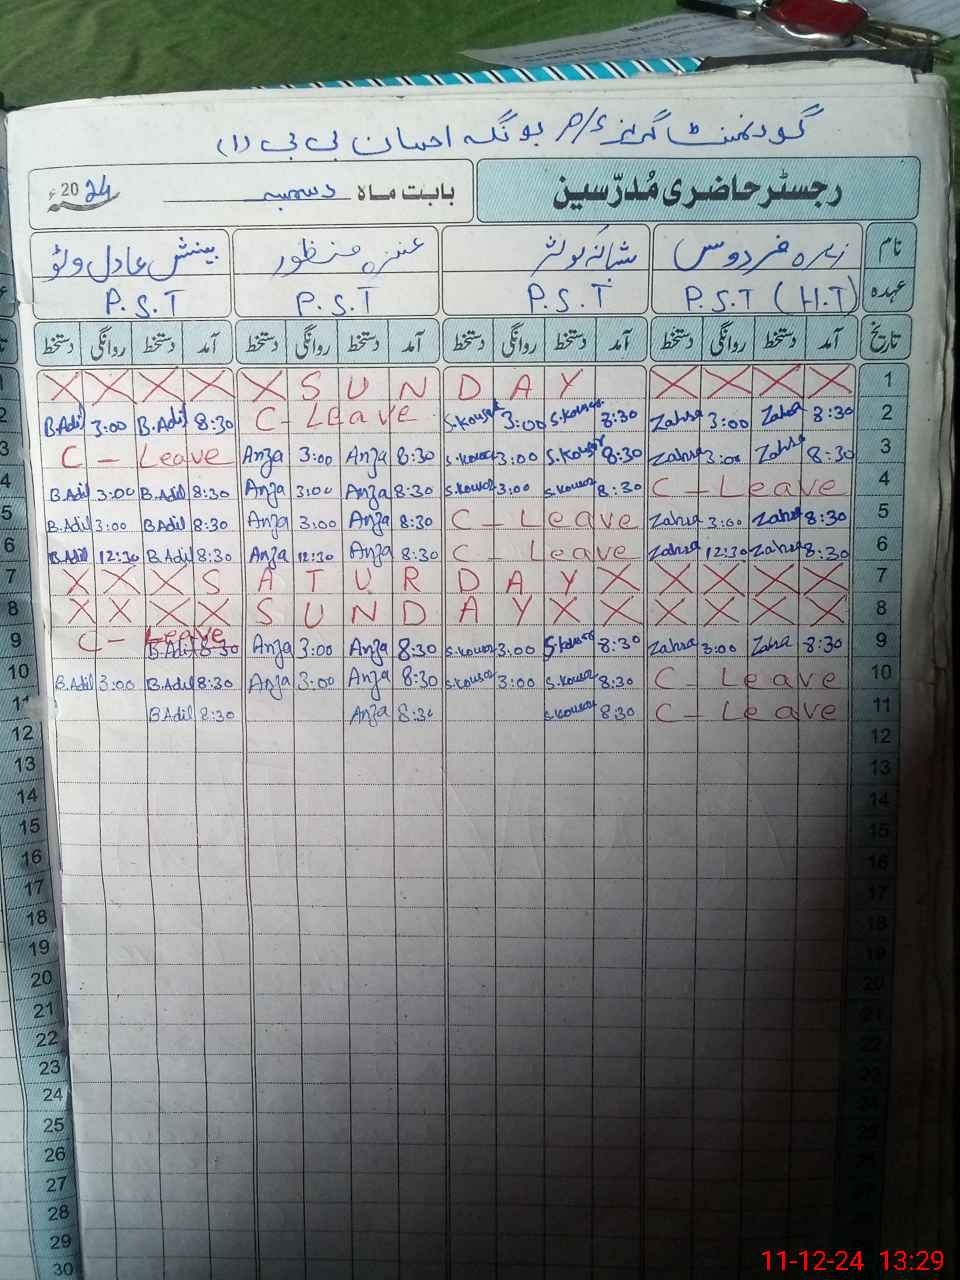 گورنمنٹ گرلز ء/م بونگہ احسان بی بی (1)
رجسٹر حاضری مُدرّسین بابت ماہ دسمبر 2024ء
نام زہرہ فردوس شبانہ کوثر عنزہ منظور بینش عادل وٹو
عہدہ P.S.T (H.T) P.S.T P.S.T P.S.T
تاریخ آمد دستخط روانگی دستخط آمد دستخط روانگی دستخط آمد دستخط روانگی دستخط آمد دستخط روانگی دستخط
1 X X X X X S U N D A Y X X X X 1
2 B.Adil 3:00 B.Adil 8:30 C - Leave S.Kousar 3:00 S.Kousar 8:30 Zahra 3:00 Zahra 8:30 2
3 C - Leave Anza 3:00 Anza 8:30 S.Kousar 3:00 S.Kousar 8:30 Zahra 3:00 Zahra 8:30 3
4 B.Adil 3:00 B.Adil 8:30 Anza 3:00 Anza 8:30 S.Kousar 3:00 S.Kousar 8:30 C - Leave 4
5 B.Adil 3:00 B.Adil 8:30 Anza 3:00 Anza 8:30 C - Leave Zahra 3:00 Zahra 8:30 5
6 B.Adil 12:30 B.Adil 8:30 Anza 12:30 Anza 8:30 C - Leave Zahra 12:30 Zahra 8:30 6
7 X X X S A T U R D A Y X X X X X 7
8 X X X X S U N D A Y X X X X X X 8
9 C - Leave B.Adil 8:30 Anza 3:00 Anza 8:30 S.Kousar 3:00 S.Kousar 8:30 Zahra 3:00 Zahra 8:30 9
10 B.Adil 3:00 B.Adil 8:30 Anza 3:00 Anza 8:30 S.Kousar 3:00 S.Kousar 8:30 C - Leave 10
11 B.Adil 8:30 Anza 8:30 S.Kousar 8:30 C - Leave 11
12 12
13 13
14 14
15 15
16 16
17 17
18 18
19 19
20 20
21 21
22 22
23 23
24 24
25 25
26
27
28
29
30
11-12-24 13:29